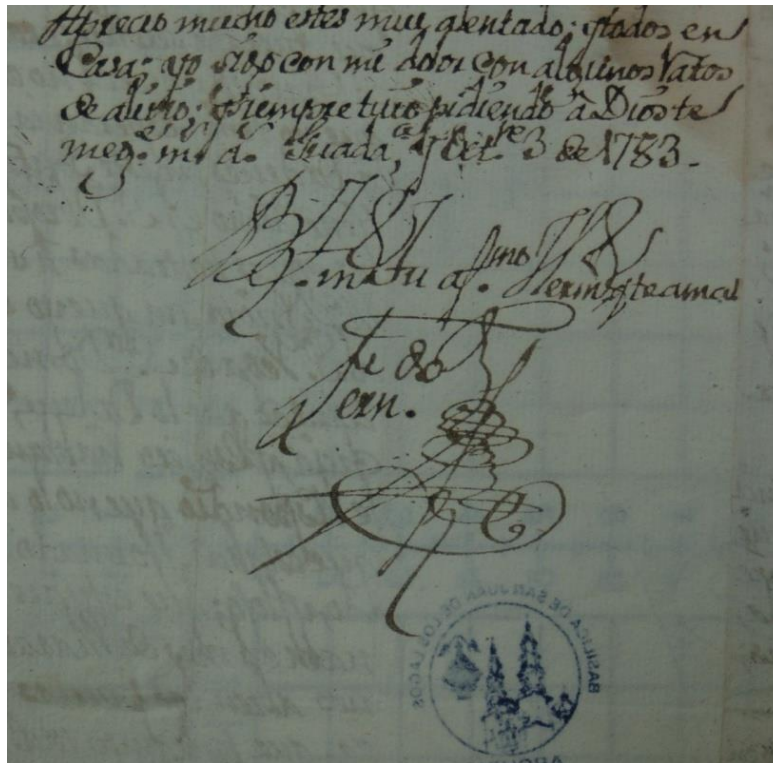 Aprecio mucho estes muy alentado; y todos en
Casa; yo sigo con mi dolor con algunos ratos
de alivio; y siempre tuyo pidiendo â Dios te
me g.e m.s a.s Guada.a y Oct.re 3 de 1783.
B. l. m. tu af.mo Herm.o q te ama
Fe do
Fern.
BASILICA DE SAN JUAN DE LOS LAGOS